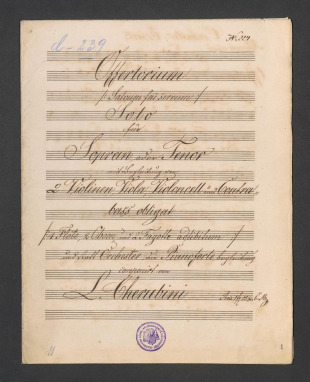 d-239
Offertorium
/: Salvum fac servum :/
Solo
für
Sopran oder Tenor
mit Begleitung von
2 Violinen, Viola, Violoncell und Contra-
bass obligat
/: 1 Flöte, 2 Oboen, 2 Fagotte adlibitum :/
und statt Orchester mit Pianoforte begleitung
componirt von
L. Cherubini
11
1